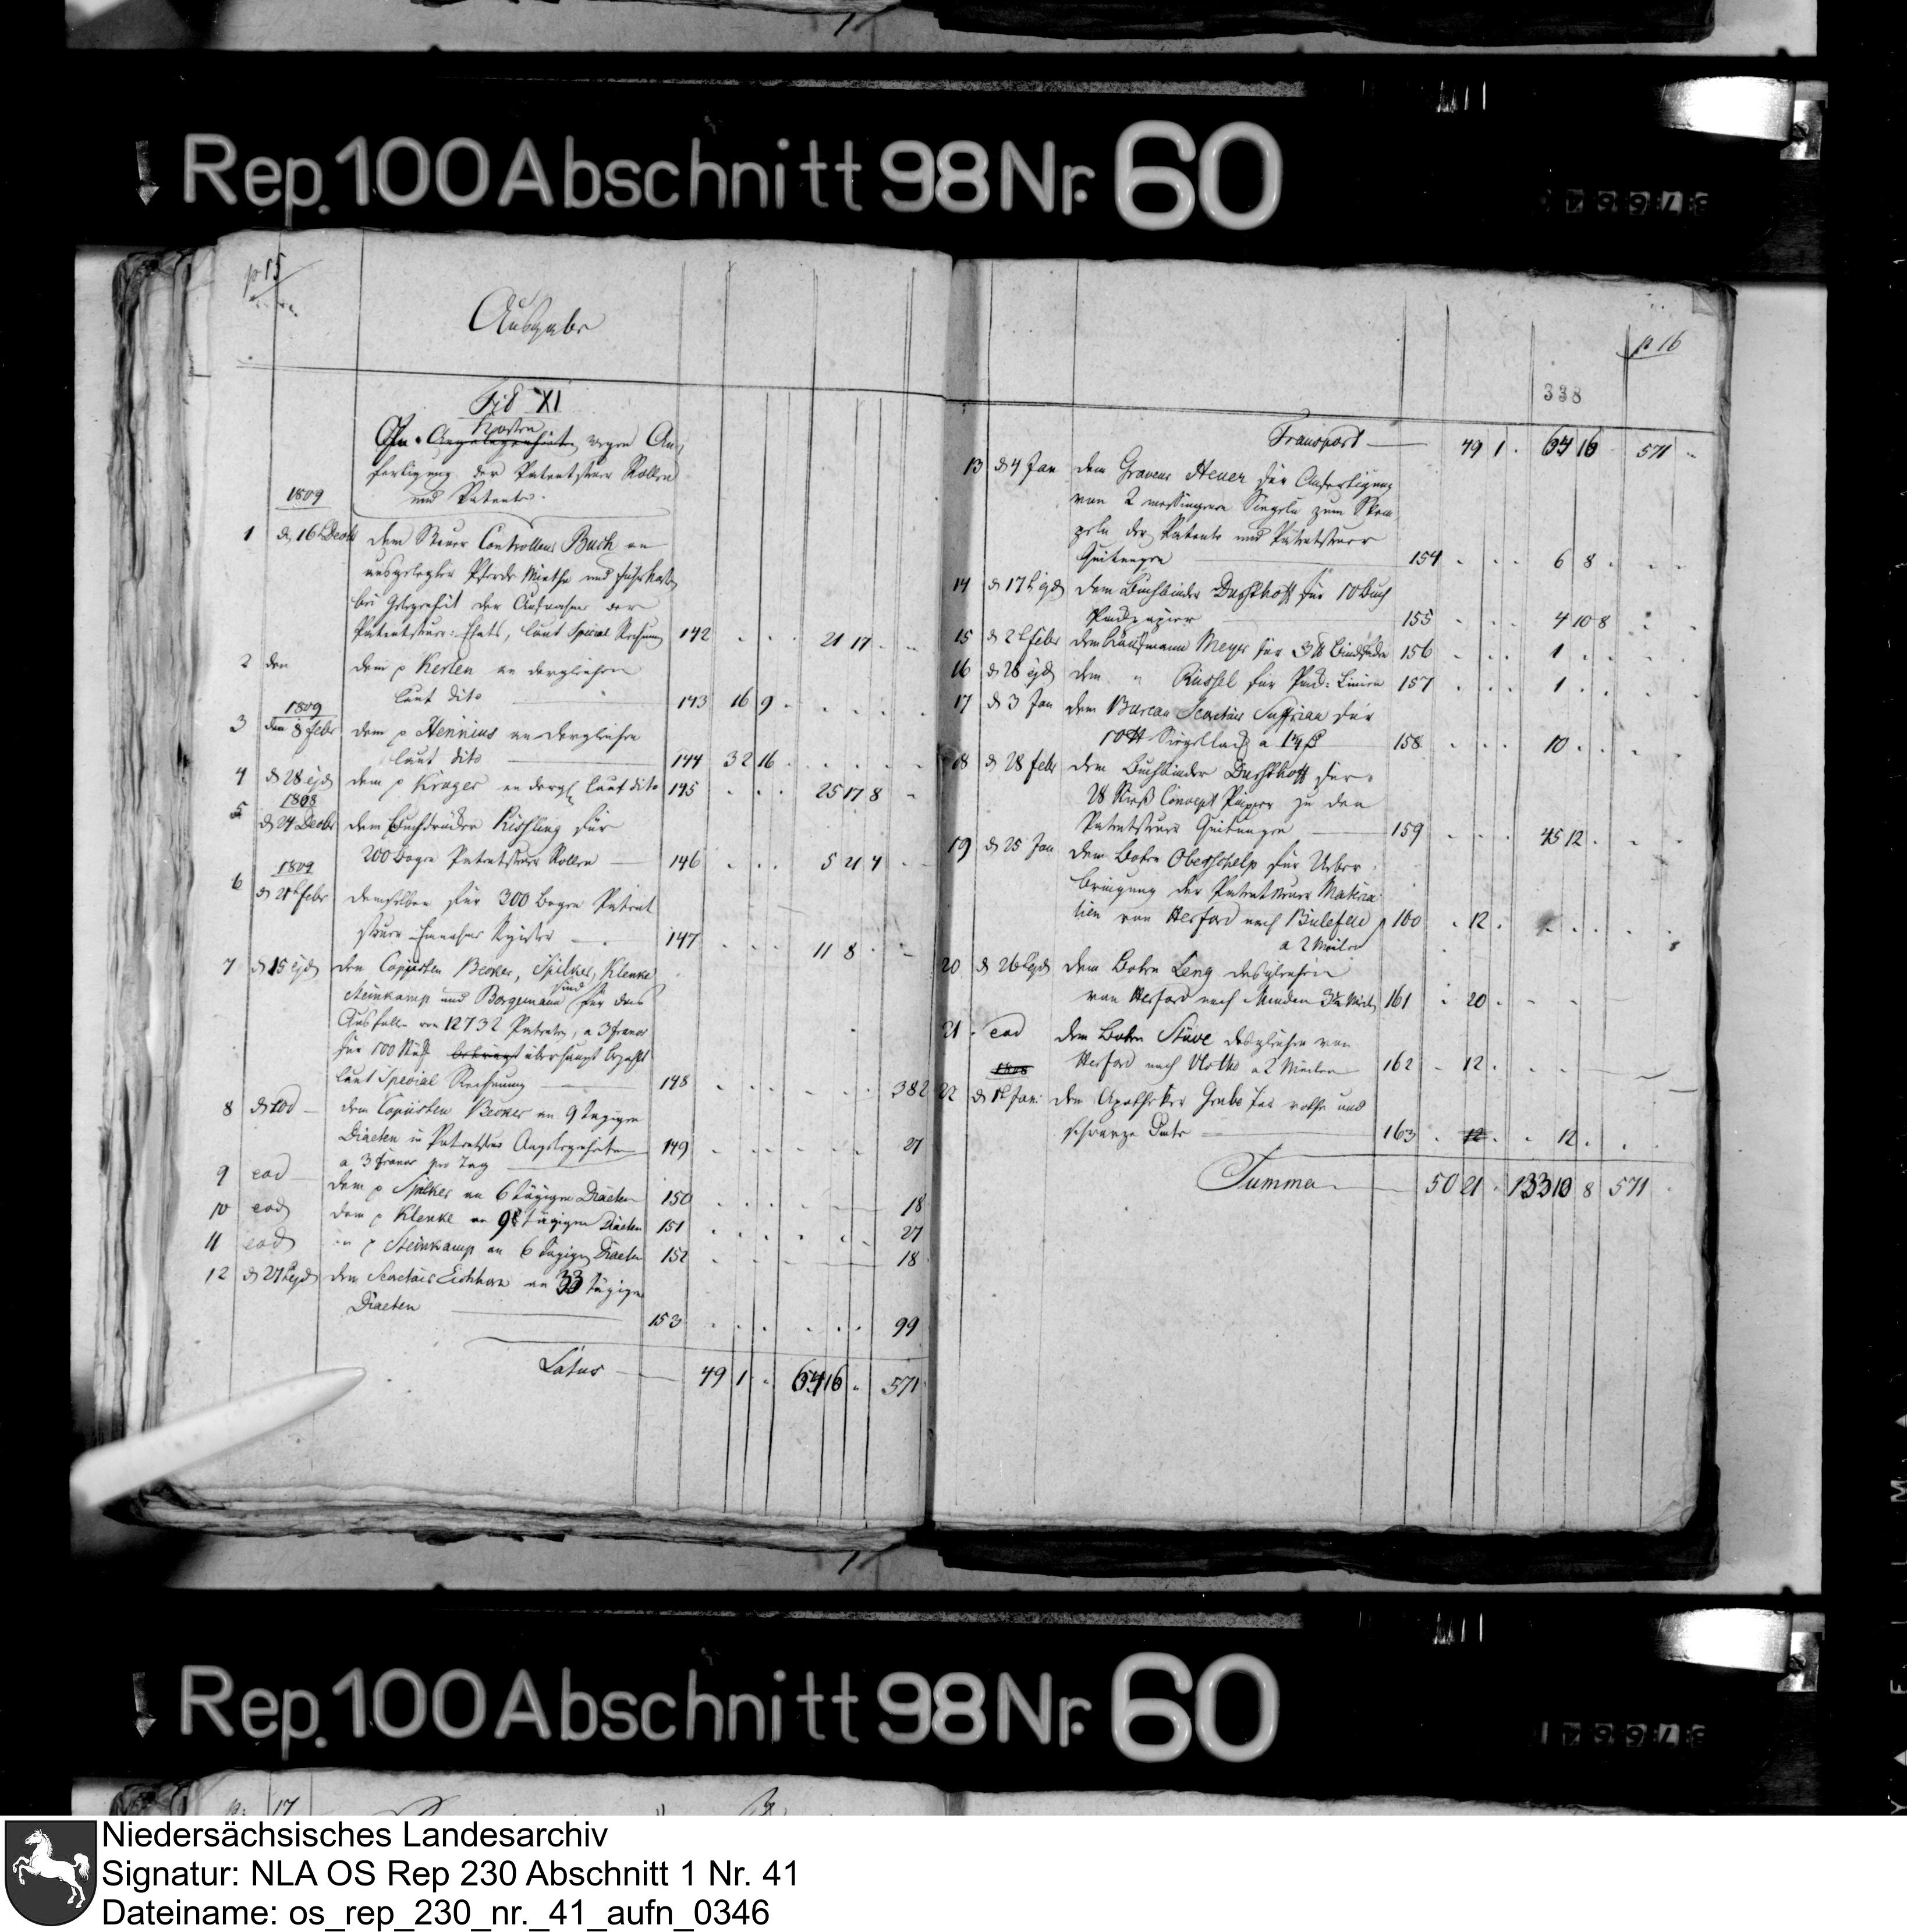 Rep. 100 Abschnitt 98 Nr. 60
p 15
Ausgabe
Tit XI
Kosten
An Angelegenheiten wegen An-
fertigung der Patentsteuer Rollen
und Patente.
1809
1 d 16t Decbr dem Steuer Controlleur Bush an
ausgelegter Pferde Miethe und Fuhrkosten
bei Gelegenheit der Aufnahme der
Patentsteuer: Etats, laut Special Rechnung 142 21 17
2 den dem p Kerlen an dergleichen
laut dito 143 16 9
1809
3 den 8 Febr dem p Hennius an dergleichen
laut dito 144 32 16
4 d 28 ejd dem p Kruger an dergl laut dito 145 25 17 8
1808
5 d 24 Decbr dem Buchdrucker Kissling für
200 Bogen Patentsteuer Rollen 146 5 21 4
1809
6 Febr demselben für 300 Bogen Patent
steuer Einnahme Register 147 11 8
7 d 15 ejd den Copiisten Becker, Spilker, Klenke
Steinkamp und Borgemann sind für das
Ausfüllen von 12732 Patenten, a 3 francs
für 100 Stück überhaupt bezahlt
laut Special Rechnung 148 382
8 d eod dem Copiisten Becker an 9 tägigen
Diaeten in Patentsteuer Angelegenheiten 149 27
a 3 francs pro Tag
9 eod dem p Spilker an 6 tägigen Diaeten 150 18
10 eod dem p Klenke an 9 tägigen Diaeten 151 27
11 eod p Steinkamp an 6 tägigen Diaeten 152 18
12 d 27t ejd dem Secretair Eichhorn an 33 tägigen
Diaeten 153 99
Latus 49 1 64 16 571
p 16
338
Transport 49 1 64 16 571
13 d 4 Jan dem Graveur Heuer für Anfertigung
von 2 messingenen Siegeln zum Stem-
peln der Patente und Patentsteuer
Quitungen 154 6 8
14 d 17t ejd dem Buchbinder Duschkoff für 10 Buch
Packpapier 155 4 10 8
15 d 2t Febr dem Kaufmann Meyer für 3 ℔ Bindfaden 156 1
16 d 28 ejd dem " Russel für Pack: Linnen 157 1
17 d 3 Jan dem Bureau Secretair Suffrian für
10 ℔ Siegellack a 158 10
18 d 28 Febr dem Buchbinder Duschkoff für
28 Rieß Concept Papier zu den
Patentsteuer Quitungen 159 45 12
19 d 25 Jan dem Boten Oberschelp für Ueber-
bringung der Patentsteuer Materia
lien von Herford nach Bielefeld 160 12
a 2 Meilen
20 d 26t ejd dem Boten Leng desgleichen
von Herford nach Minden 161 20
21 eod dem Boten Stüve desgleichen von
Herford nach Vlotho a 2 Meilen 162 12
1808
22 d Jan dem Apotheker Grabe für rothe und
schwarze Dinte 163 12 12
Summa 50 21 133 10 8 571
Rep. 100 Abschnitt 98 Nr. 60
p: 17
Niedersächsisches Landesarchiv
Signatur: NLA OS Rep 230 Abschnitt 1 Nr. 41
Dateiname: os_rep_230_nr._41_aufn_0346